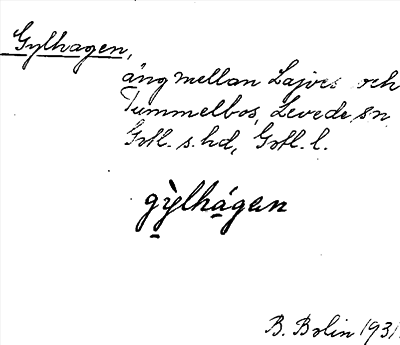 Gylhagen,
äng mellan Lajves och
Tummelbos, Levede sn
Gotl. s. hd, Gotl. l.
gỳlhágen
B. Bolin 1931.